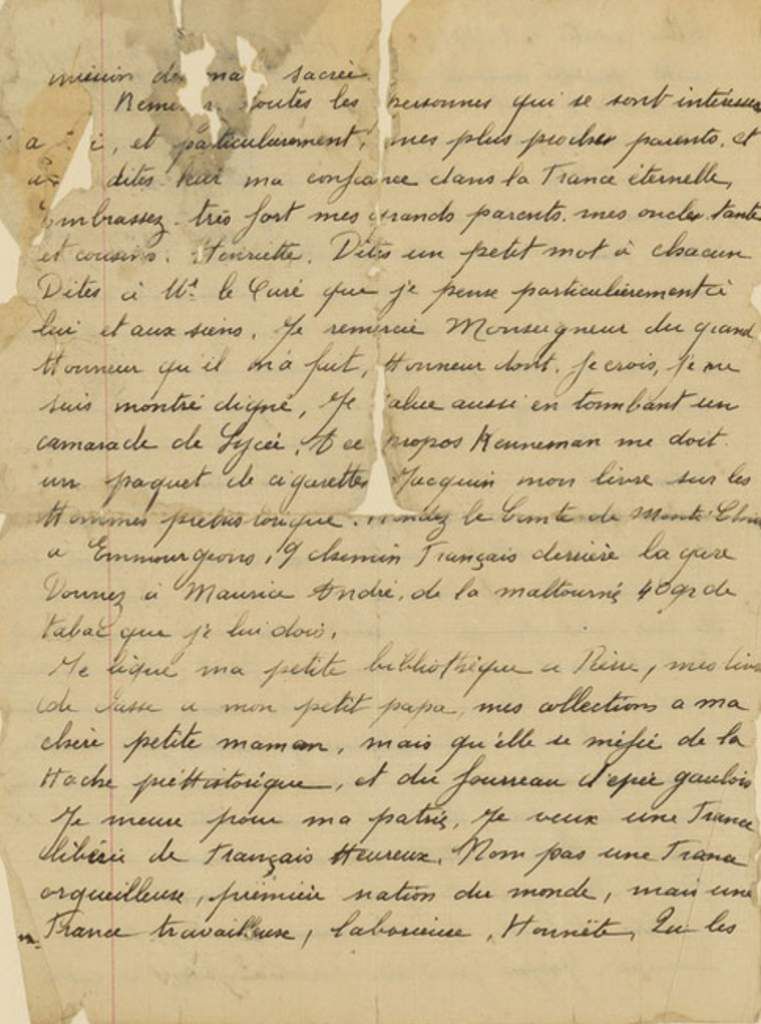 mission de ma sacrée
Remer r toutes les personnes qui se sont intéressées
a i, et particulierement, mes plus proches parents, et
dites leur ma confiance dans la France éternelle,
Embrassez très fort mes grands parents. mes oncles. tantes
et cousins. Henriette. Dites un petit mot à chacun
Dites à Mr le Curé que je pense particulièrement à
lui et aux siens. Je remercie Monseigneur du grand
Honneur qu'il m'a fait, Honneur dont, je crois, je me
suis montré digne, Je salue aussi en tombant un
camarade de Lycée. A ce propos Henneman me doit
un paquet de cigarettes Jacquin mon livre sur les
Hommes préhistorique. Rendez le Comte de Monte Christo
a Emmourgeons, 9 chemin Français derrière la gare
Donnez à Maurice André, de la maltourné 40gr de
tabac que je lui dois.
Je lègue ma petite bibliothèque a Pierre, mes livres
de classe a mon petit papa, mes collections a ma
chère petite maman, mais qu'elle se méfie de la
Hache préHistorique, et du fourreau d'epée gaulois
Je meure pour ma patrie, Je veux une France
libérée de Français Heureux, Nom pas une France
orgueilleuse, première nation du monde, mais une
France travailleuse, laborieuse, Honnête, Qu les